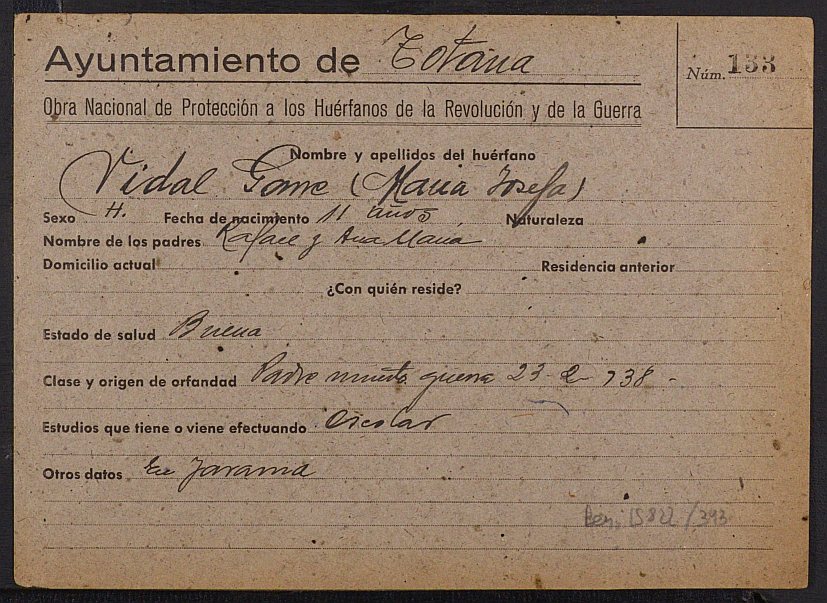 Ayuntamiento de Totana
Núm. 133
Obra Nacional de Protección a los Huérfanos de la Revolución y de la Guerra
Nombre y apellidos del huérfano
Vidal (Maria Josefa)
Sexo H. Fecha de nacimiento 11 años Naturaleza
Nombre de los padres Rafael y Ana Maria
Domicilio actual Residencia anterior
¿Con quién reside?
Estado de salud Buena
Clase y origen de orfandad Padre muerto guerra 23-2-938-
Estudios que tiene o viene efectuando Escolar
Otros datos En Jarama
15822/393